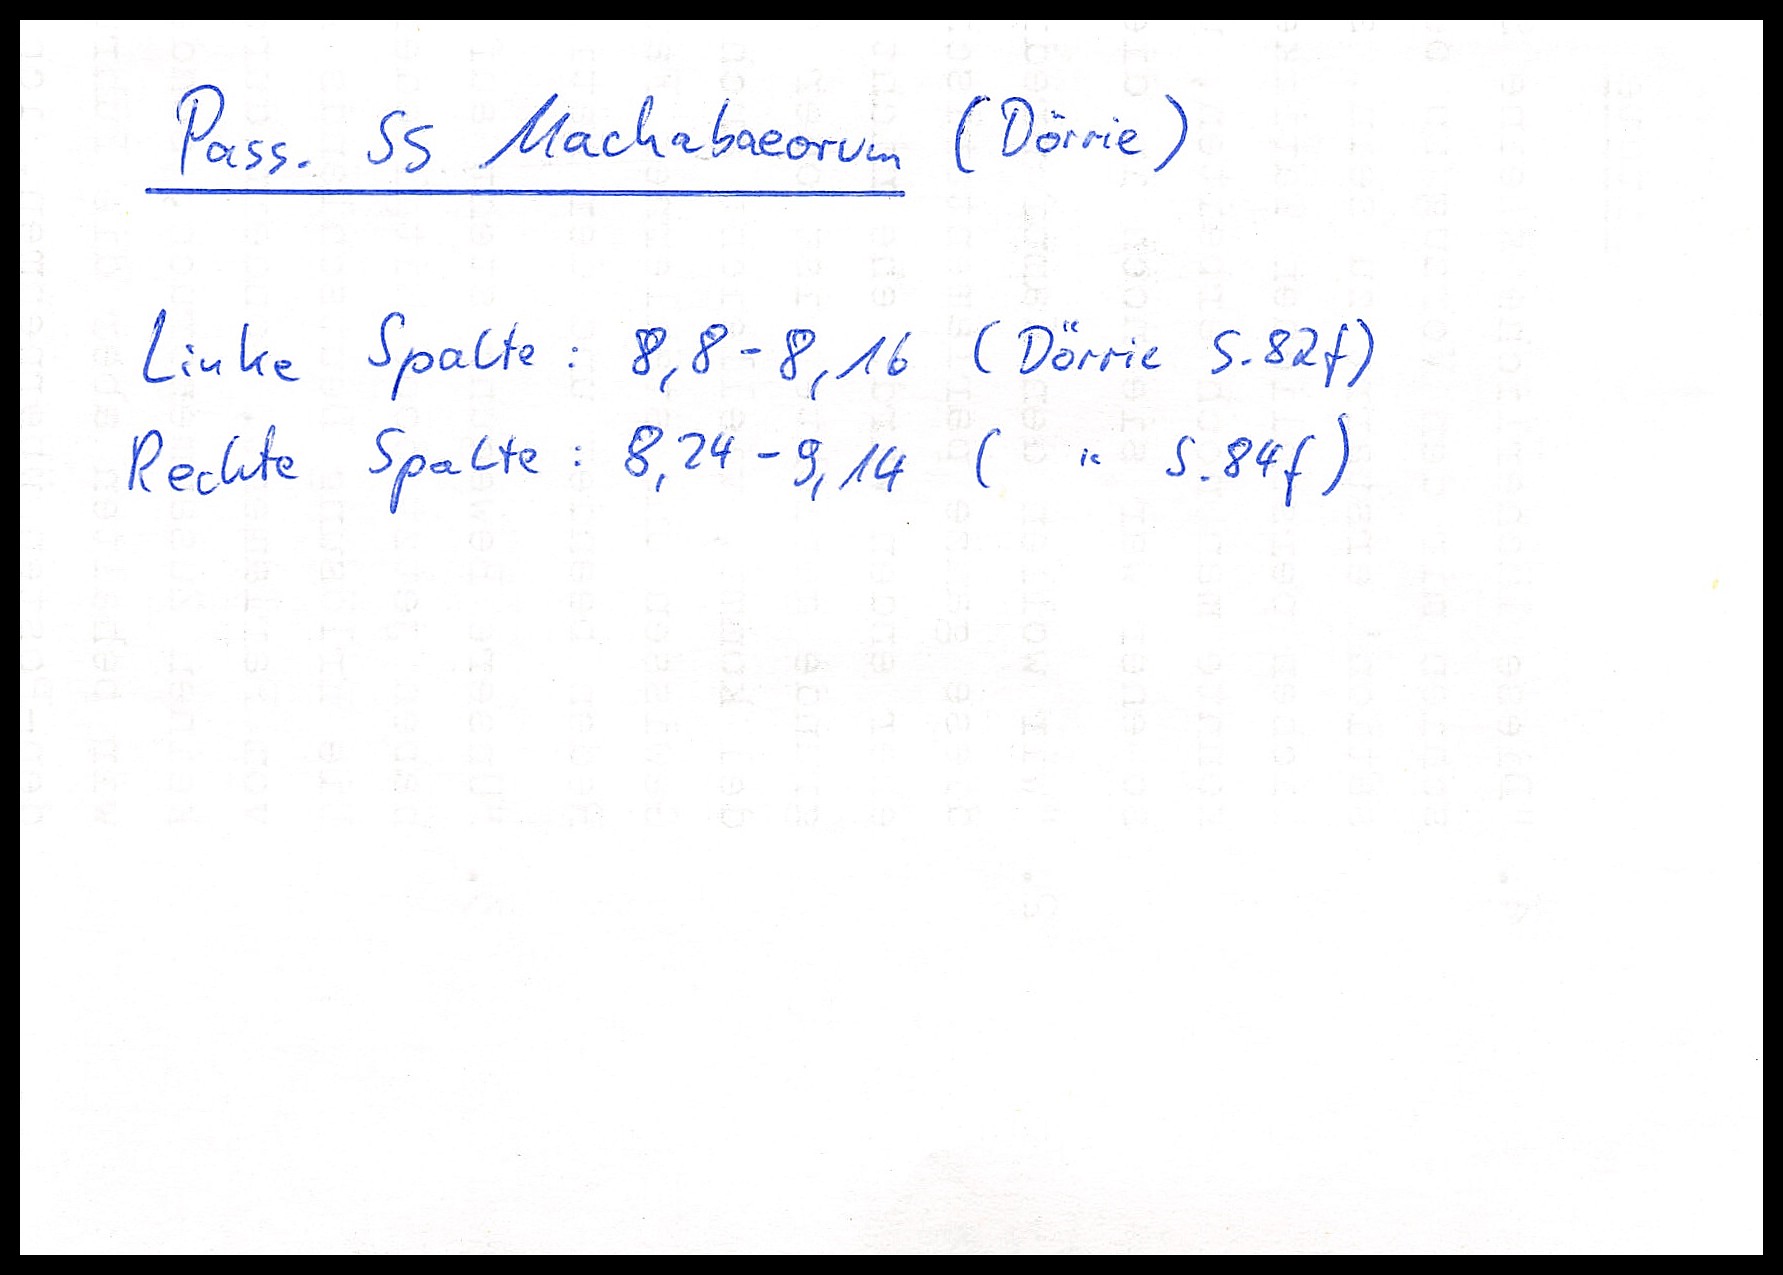 Pass. SS Machabaeorum (Dörrie)
Linke Spalte : 8,8 - 8,16 (Dörrie S.82f)
Rechte Spalte : 8,24 - 9,14 ( " S.84f)